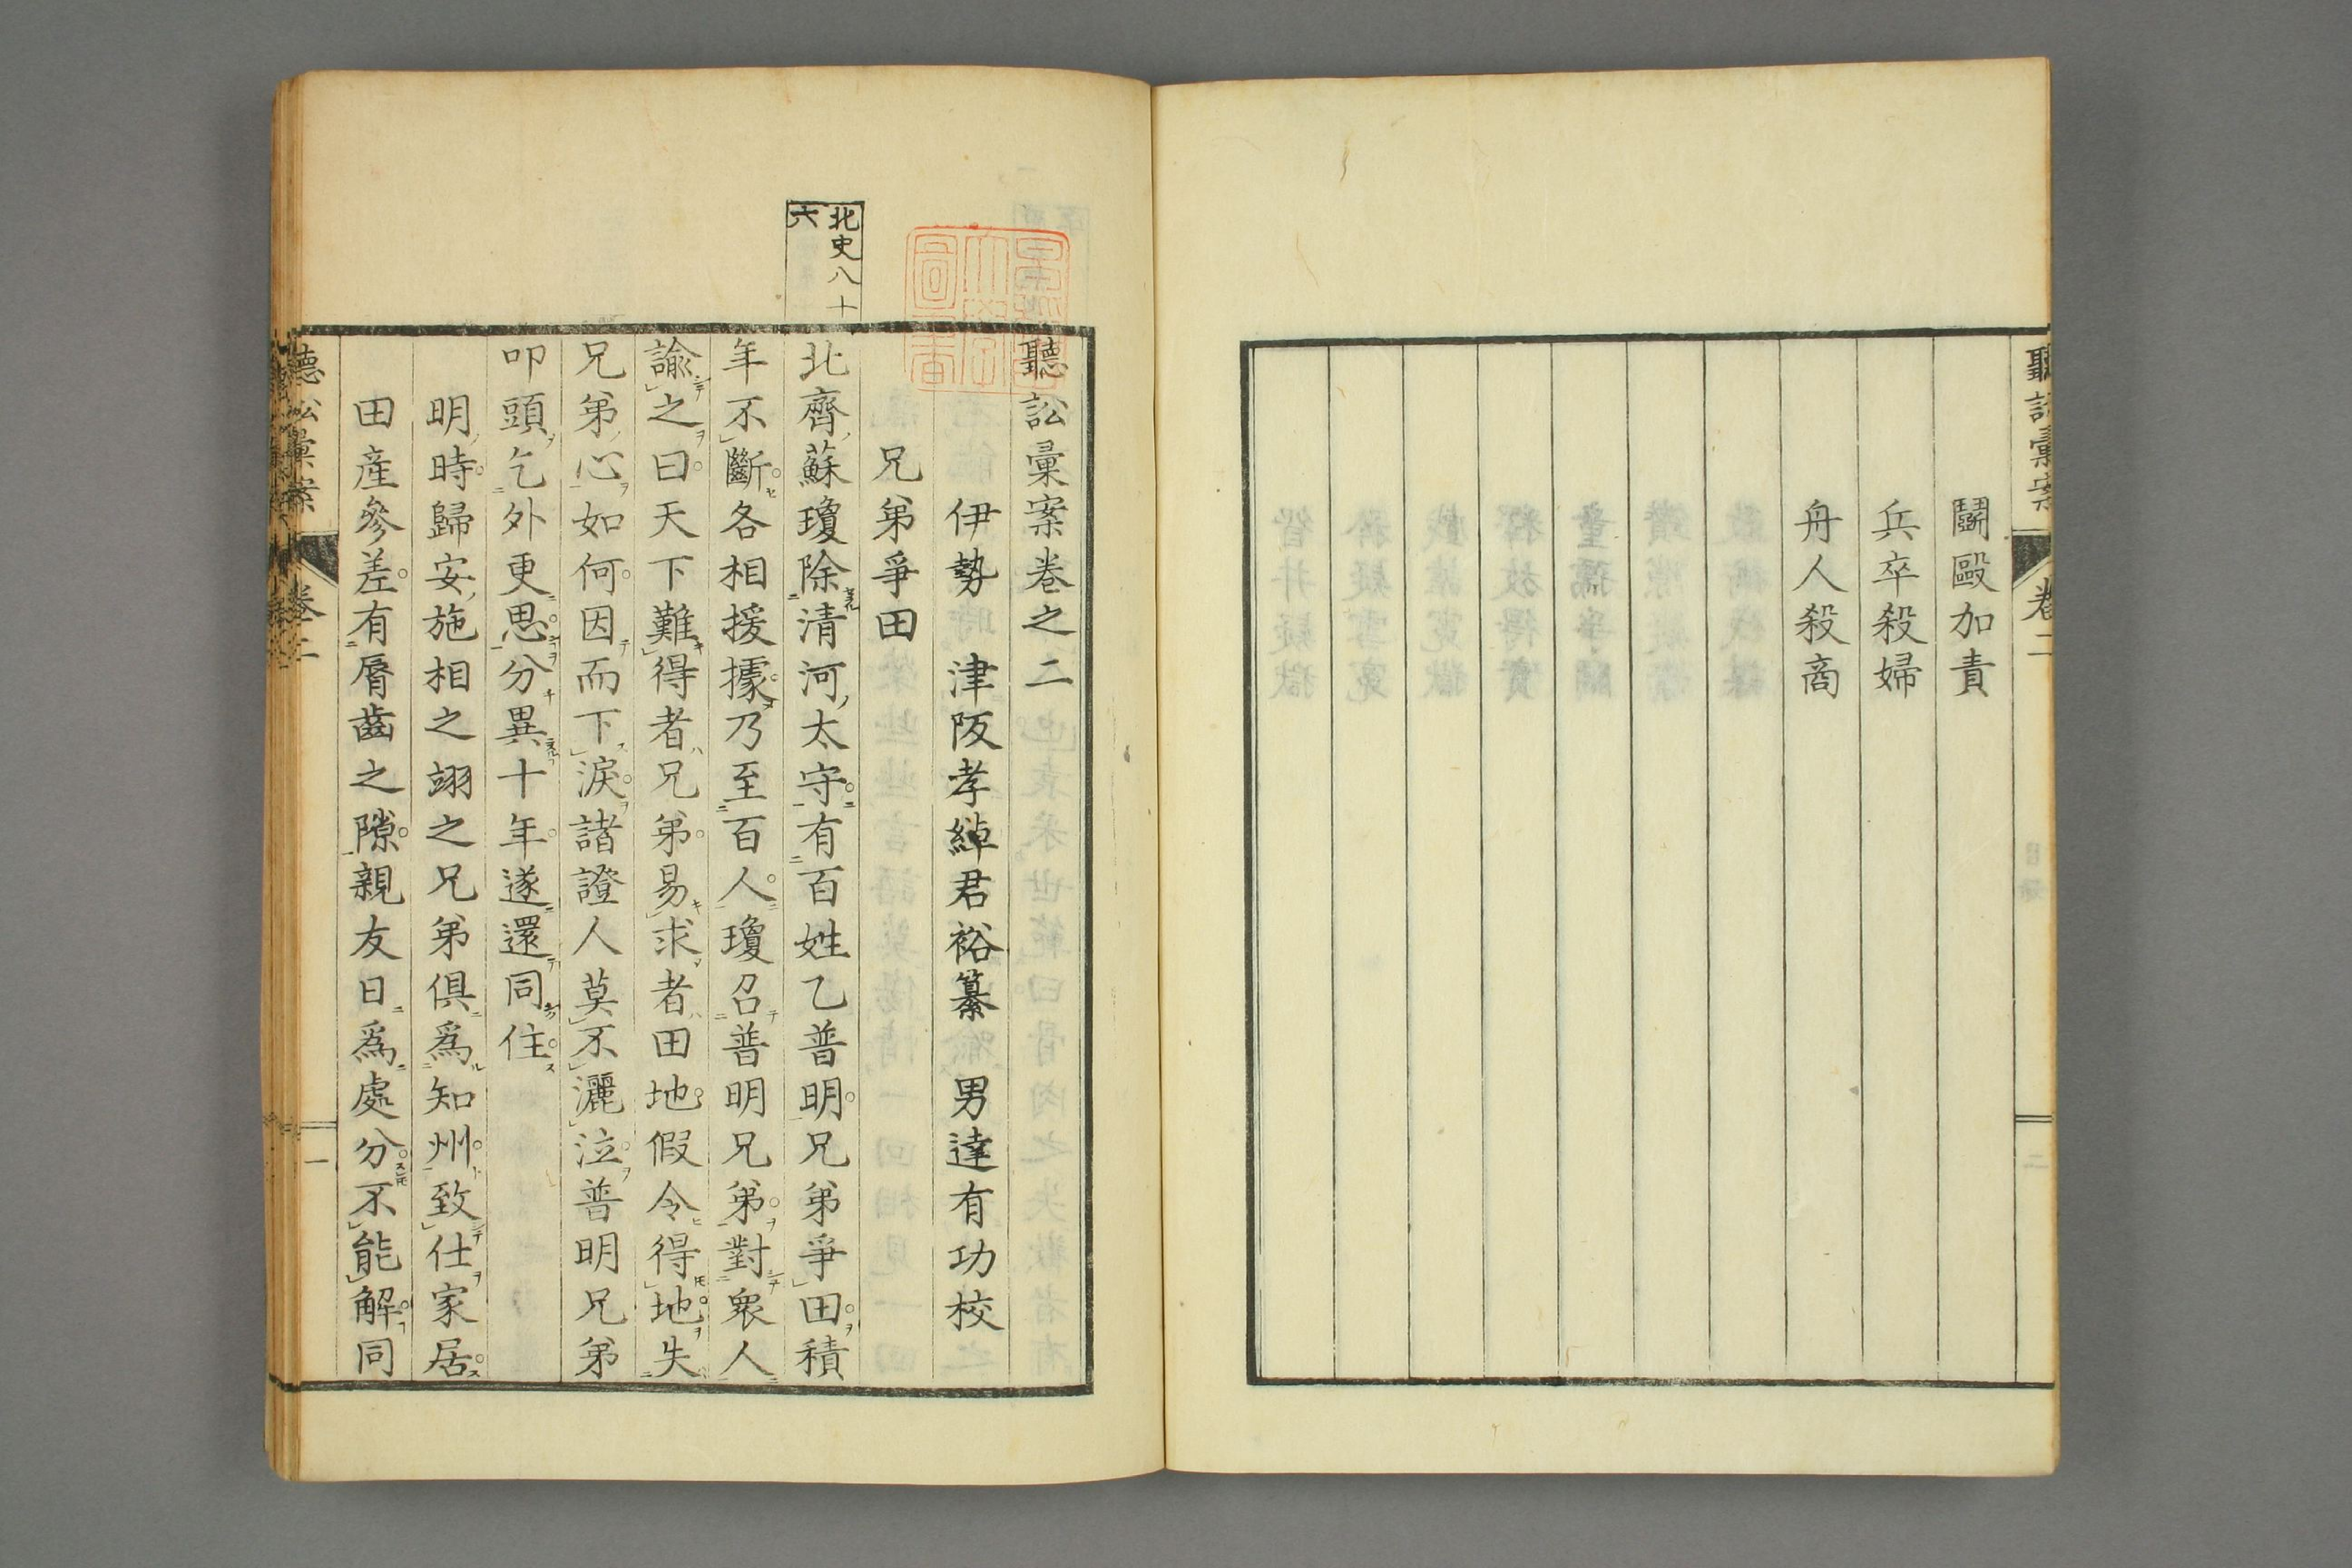 聽訟彙案 卷二
鬪毆加責
兵卒殺婦
舟人殺商
二
聽訟彙案卷之二
伊勢 津阪孝綽君裕纂 男達有功校
兄弟爭田
北史八十
六
北齊蘇瓊除清河太守有百姓乙普明兄弟爭田積
年不斷各相援據乃至百人瓊召普明兄弟對衆人
諭之曰天下難得者兄弟易求者田地假令得地失
兄弟心如何因而下淚諸證人莫不灑泣普明兄弟
叩頭乞外更思分異十年遂還同住
明時歸安施相之翊之兄弟俱爲知州致仕家居
田產參差有脣齒之隙親友日爲處分不能解同
聽訟彙案 卷二
一